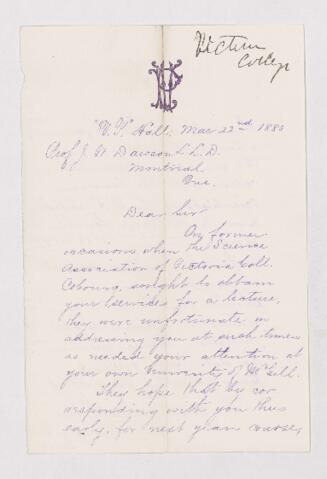 Victoria
College
"V. P." Hall, Mar 22nd 1880
Prof. J. W. Dawson L.L.D.
Montreal
Que.
Dear Sir
On former
occasions when the Science
Association of Victoria Coll.
Cobourg, sought to obtain
your services for a lecture,
they were unfortunate in
addressing you at such times
as needed your attention at
your own University of McGill.
They hope that by cor
responding with you thus
early, for next year course,